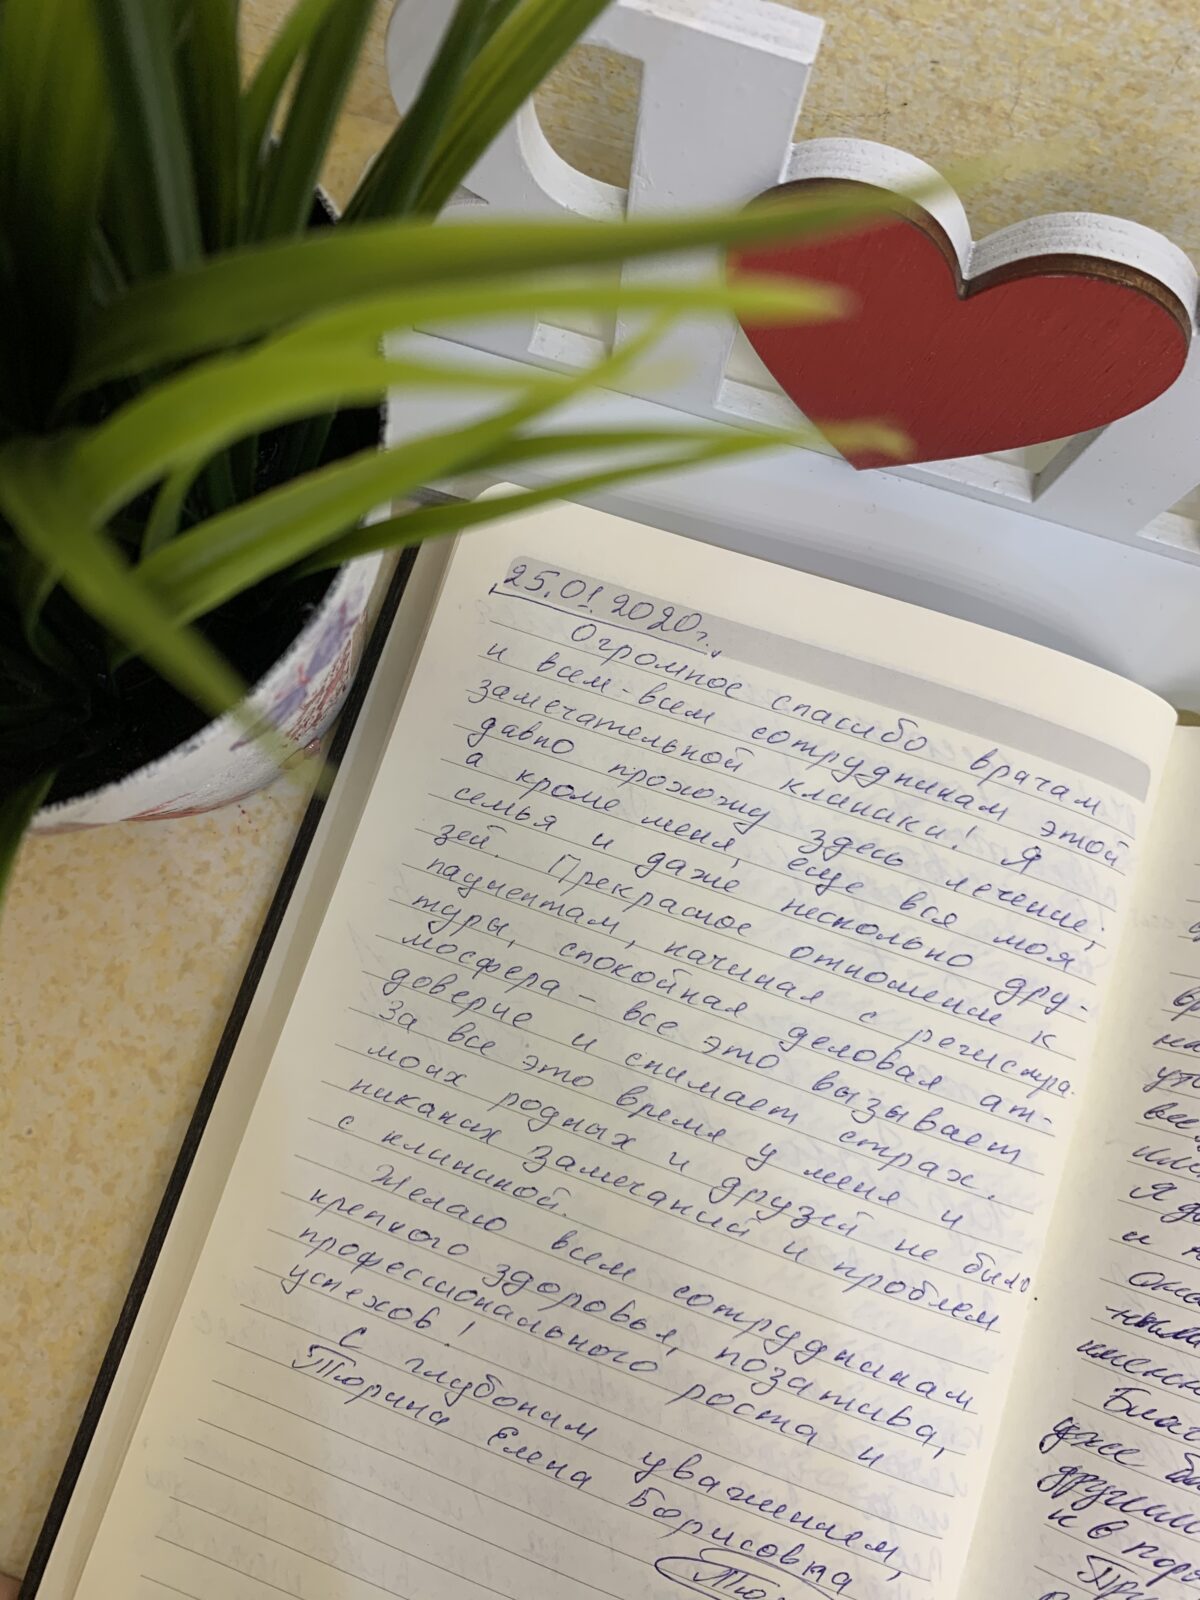 25.01.2020г.
Огромное спасибо врачам
и всем-всем сотрудникам этой
замечательной клиники! Я
давно прохожу здесь лечение;
а кроме меня, еще вся моя
семья и даже несколько дру-
зей. Прекрасное отношение к
пациентам, начиная с регистра-
туры, спокойная деловая ат-
мосфера – все это вызывает
доверие и снимает страх.
За все это время у меня и
моих родных и друзей не было
никаких замечаний и проблем
с клиникой.
Желаю всем сотрудникам
крепкого здоровья, позатива,
профессионального роста и
успехов!
С глубоким уважением,
Тюрина Елена Борисовна
Тю
вр
на
уте
все
Я
и
Окса
ными
именн
Благ
уже бы
другим
и в пор
При